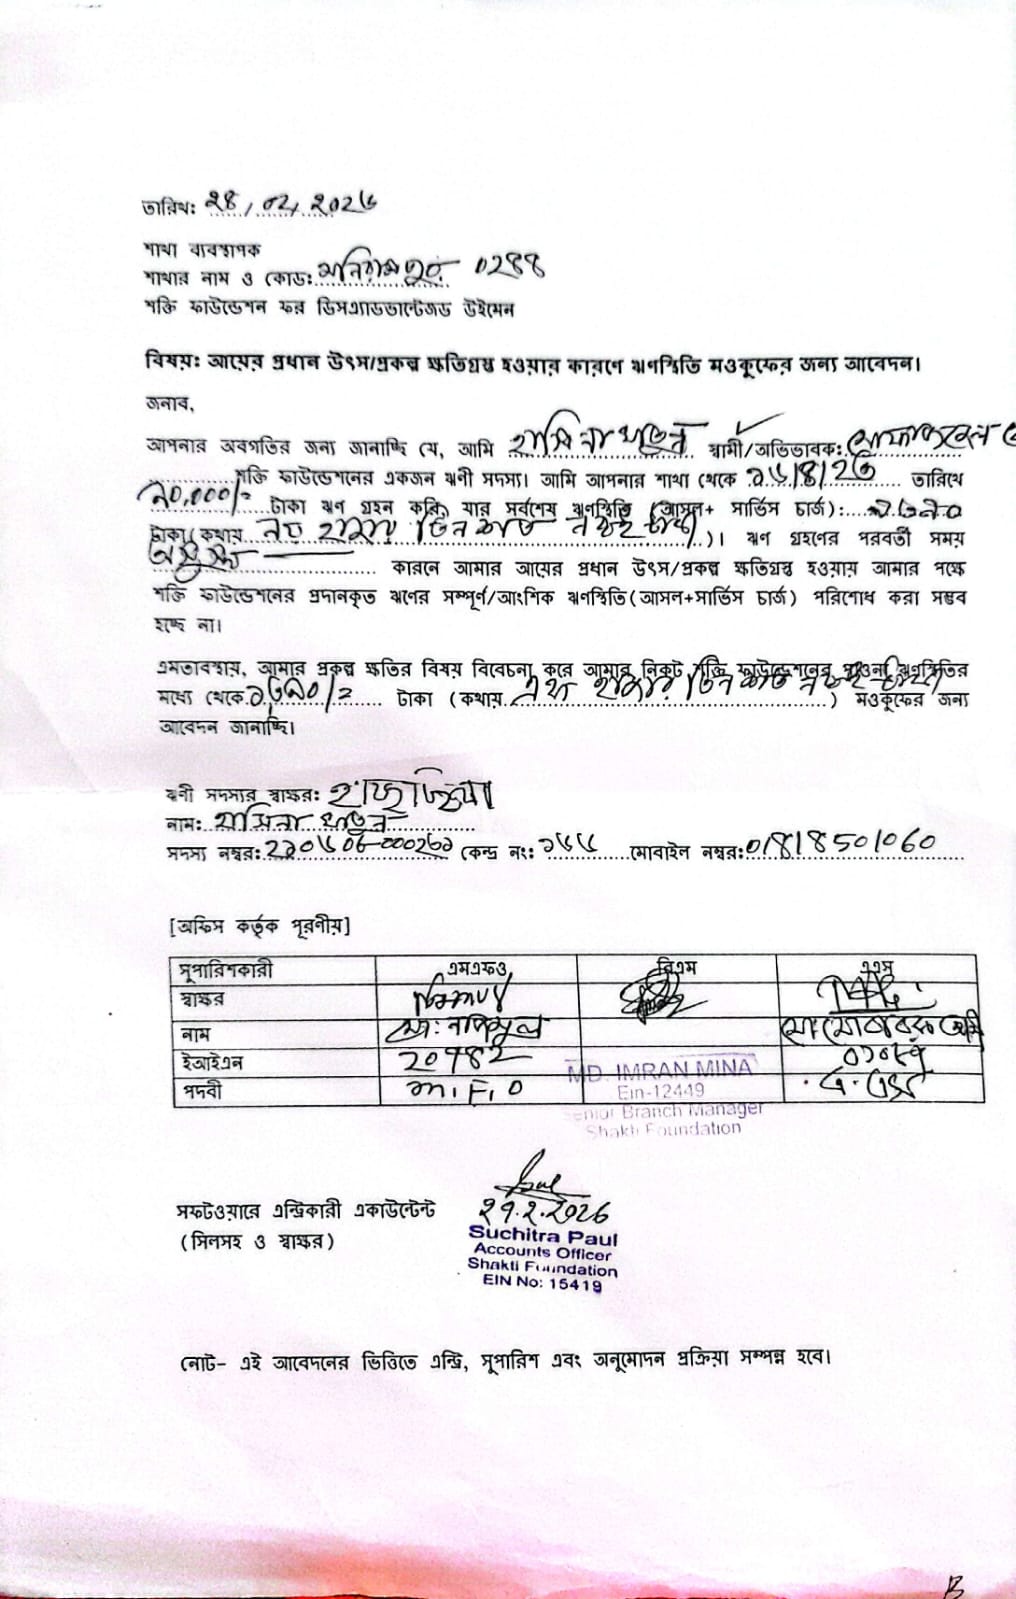 তারিখ: ২৪/০২/২০২৬
শাখা ব্যবস্থাপক
শাখার নাম ও কোড: মনিরামপুর ০২৪৪
শক্তি ফাউন্ডেশন ফর ডিসএ্যাডভান্টেজড উইমেন
বিষয়: আয়ের প্রধান উৎস/প্রকল্প ক্ষতিগ্রস্থ হওয়ার কারণে ঋণস্থিতি মওকুফের জন্য আবেদন।
জনাব,
আপনার অবগতির জন্য জানাচ্ছি যে, আমি হাসিনা খাতুন স্বামী/অভিভাবক:
শক্তি ফাউন্ডেশনের একজন ঋণী সদস্য। আমি আপনার শাখা থেকে তারিখে
টাকা ঋণ গ্রহন করি, যার সর্বশেষ ঋণস্থিতি (আসল+ সার্ভিস চার্জ):
টাকা(কথায় নয় হাজার তিন শত নব্বই টাকা)। ঋণ গ্রহণের পরবর্তী সময়
অসুস্থ কারনে আমার আয়ের প্রধান উৎস/প্রকল্প ক্ষতিগ্রস্থ হওয়ায় আমার পক্ষে
শক্তি ফাউন্ডেশনের প্রদানকৃত ঋণের সম্পূর্ণ/আংশিক ঋণস্থিতি(আসল+সার্ভিস চার্জ) পরিশোধ করা সম্ভব
হচ্ছে না।
এমতাবস্থায়, আমার প্রকল্প ক্ষতির বিষয় বিবেচনা করে আমার নিকট শক্তি ফাউন্ডেশনের পাওনা ঋণস্থিতির
মধ্যে থেকে টাকা (কথায় হাজার তিন শত নব্বই টাকা) মওকুফের জন্য
আবেদন জানাচ্ছি।
ঋণী সদস্যর স্বাক্ষর:
নাম: হাসিনা খাতুন
সদস্য নম্বর: কেন্দ্র নং: মোবাইল নম্বর: 01818501060
[অফিস কর্তৃক পূরণীয়]
সুপারিশকারী এমএফও বিএম এএস
স্বাক্ষর
নাম মো: নাদিমুল
ইআইএন 20982
পদবী m.F.O
MD. IMRAN MINA
Ein-12449
Senior Branch Manager
Shakti Foundation
সফটওয়ারে এন্ট্রিকারী একাউন্টেন্ট
(সিলসহ ও স্বাক্ষর)
২৭.২.2026
Suchitra Paul
Accounts Officer
Shakti Foundation
EIN No: 15419
নোট- এই আবেদনের ভিত্তিতে এন্ট্রি, সুপারিশ এবং অনুমোদন প্রক্রিয়া সম্পন্ন হবে।